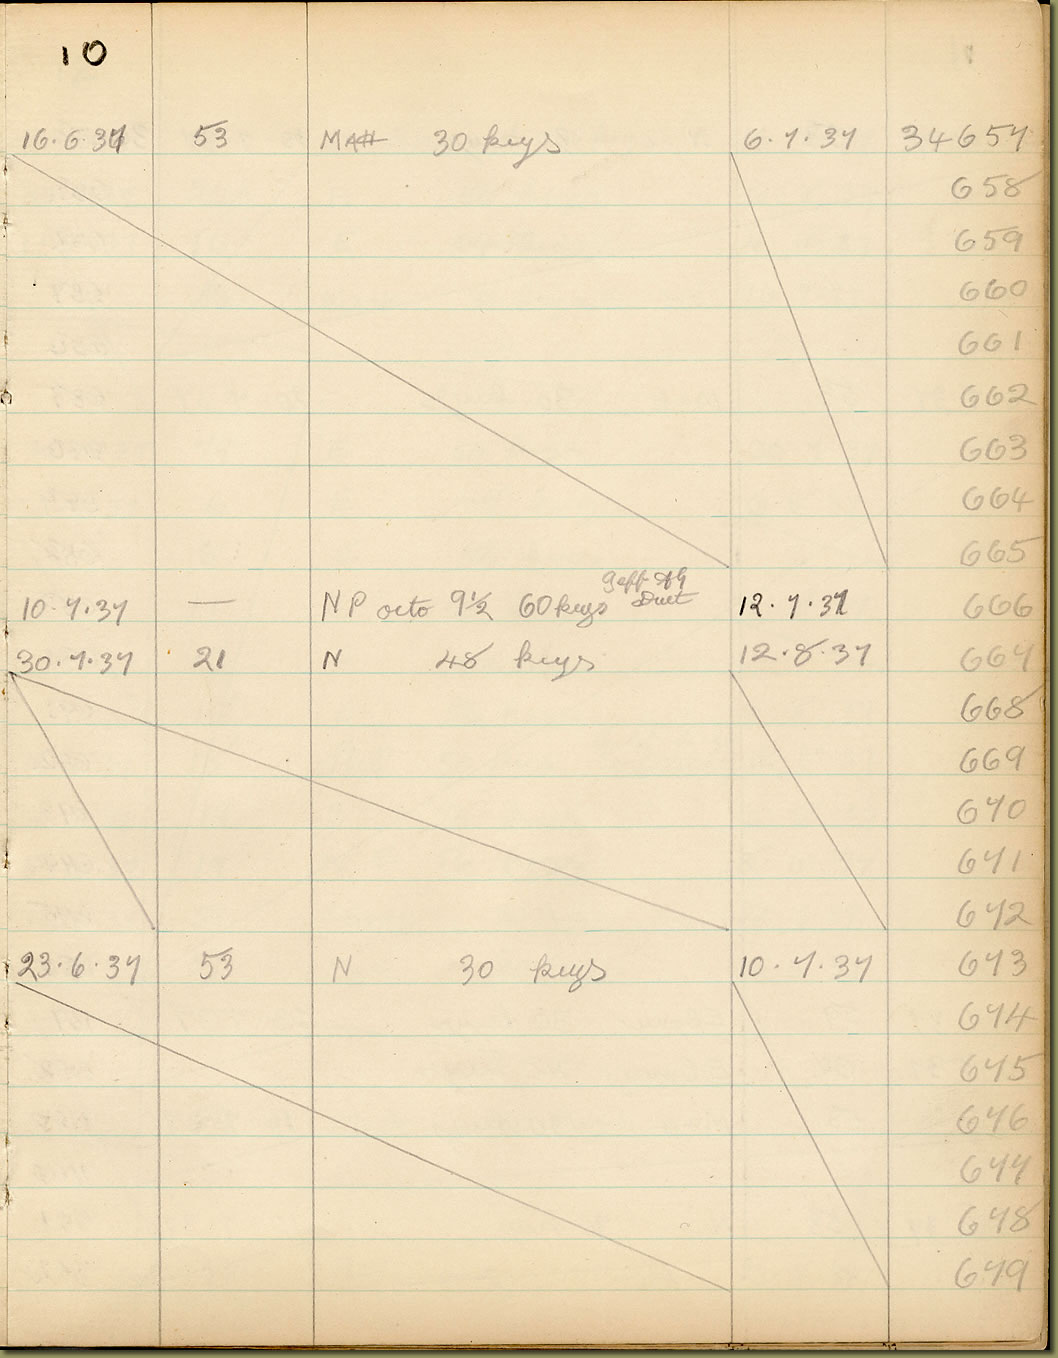 10
16.6.37 53 30 keys 6.7.37 34657
658
659
660
661
662
663
664
665
Duet
10.7.37 — NP octo 9½ 60 keys 12.7.37 666
30.7.37 21 N 48 keys 12.8.37 667
668
669
670
671
672
23.6.37 53 N 30 keys 10.7.37 673
674
675
676
677
678
679